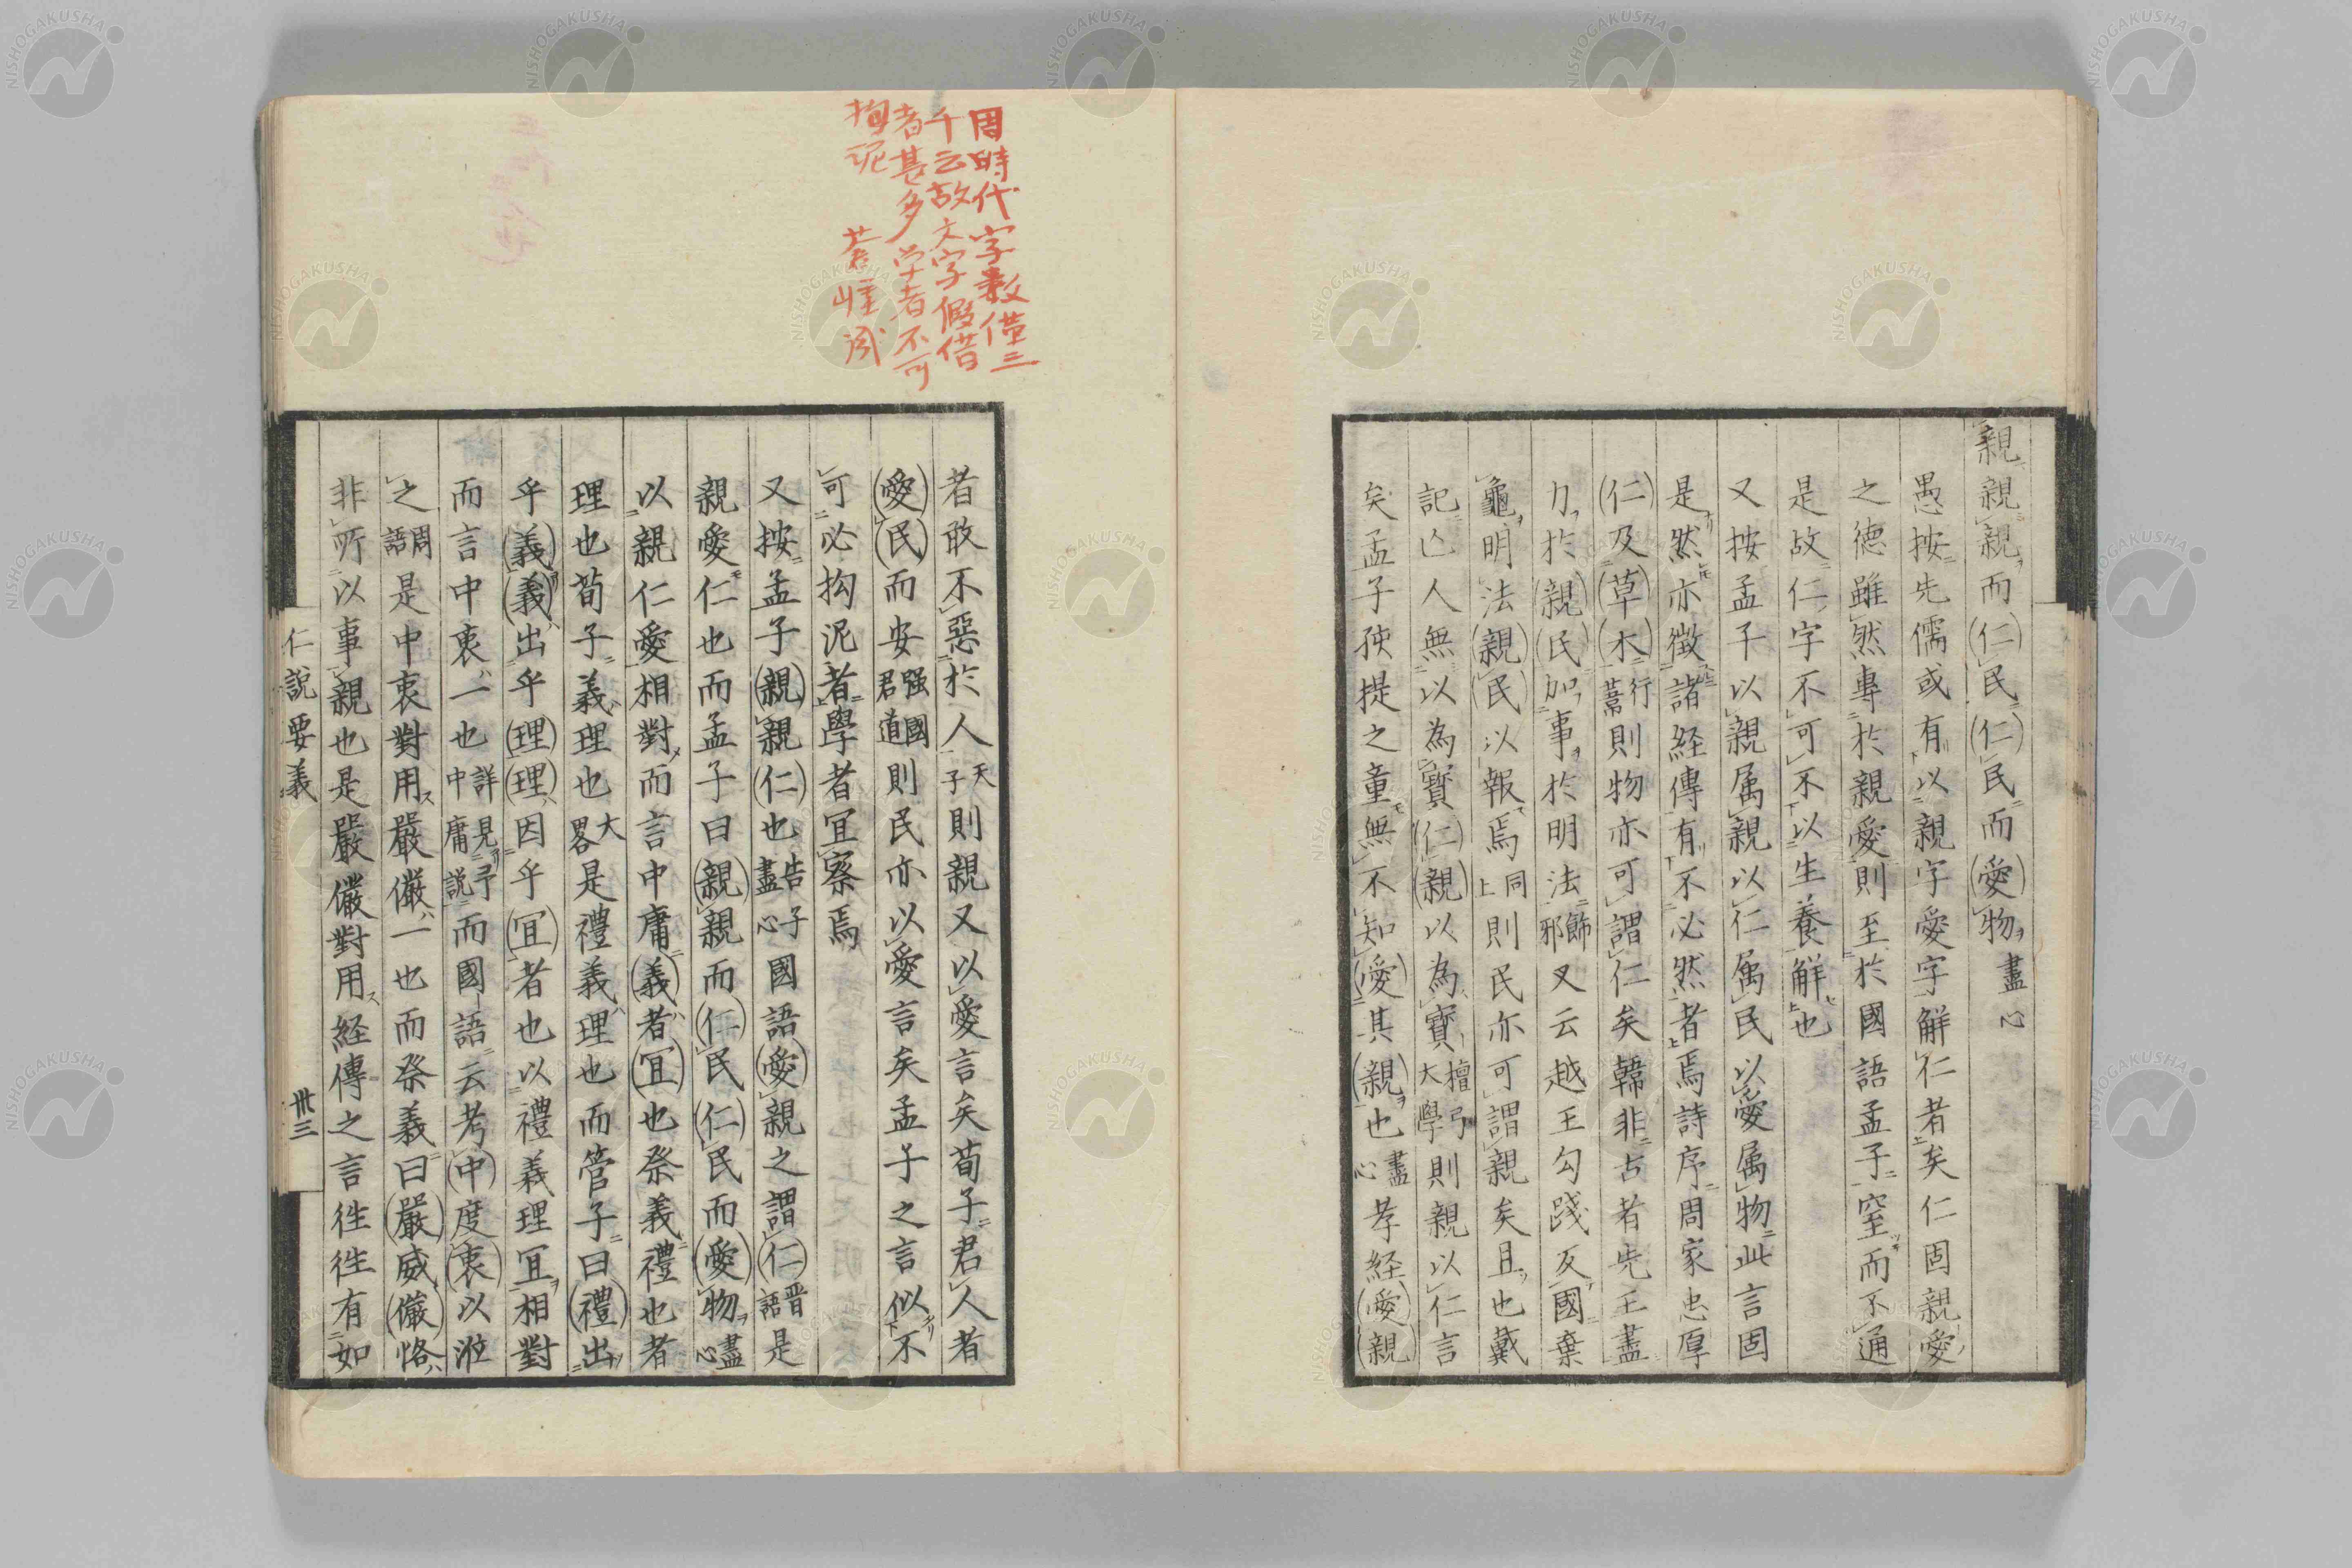 親親親而仁民仁民而愛物盡心
愚按先儒或有以親字愛字解仁者矣仁固親愛
之德雖然專於親愛則至於國語孟子窒而不通
是故仁字不可不以生養解也
又按孟子以親属親以仁属民以愛属物此言固
是然亦徴諸経傳有不必然者焉詩序周家忠厚
仁及草木行葦則物亦可謂仁矣韓非古者先王盡
力於親民加事於明法飾邪又云越王勾踐反國棄
龜明法親民以報焉同上則民亦可謂親矣且也戴
記亡人無以為寶仁親以為寶檀弓大學則親以仁言
矣孟子孩提之童無不知愛其親也盡心孝経愛親
者敢不惡於人天子則親又以愛言矣荀子君人者
愛民而安强國君道則民亦以愛言矣孟子之言似不
可必拘泥者學者宜察焉
又按孟子親親仁也告子盡心國語愛親之謂仁晋語是
親愛仁也而孟子曰親親而仁民仁民而愛物盡心
以親仁愛相對而言中庸義者宜也祭義禮也者
理也荀子義理也大畧是禮義理也而管子曰禮出
乎義義出乎理理因乎宜者也以禮義理宜相對
而言中衷一也詳見予中庸説而國語云考中度衷以涖
之周語是中衷對用嚴儼一也而祭義曰嚴威儼恪
非所以事親也是嚴儼對用経傳之言徃徃有如
仁説要義
卅三
周時代字数僅三
千云故文字假借
者甚多学者不可
拘泥